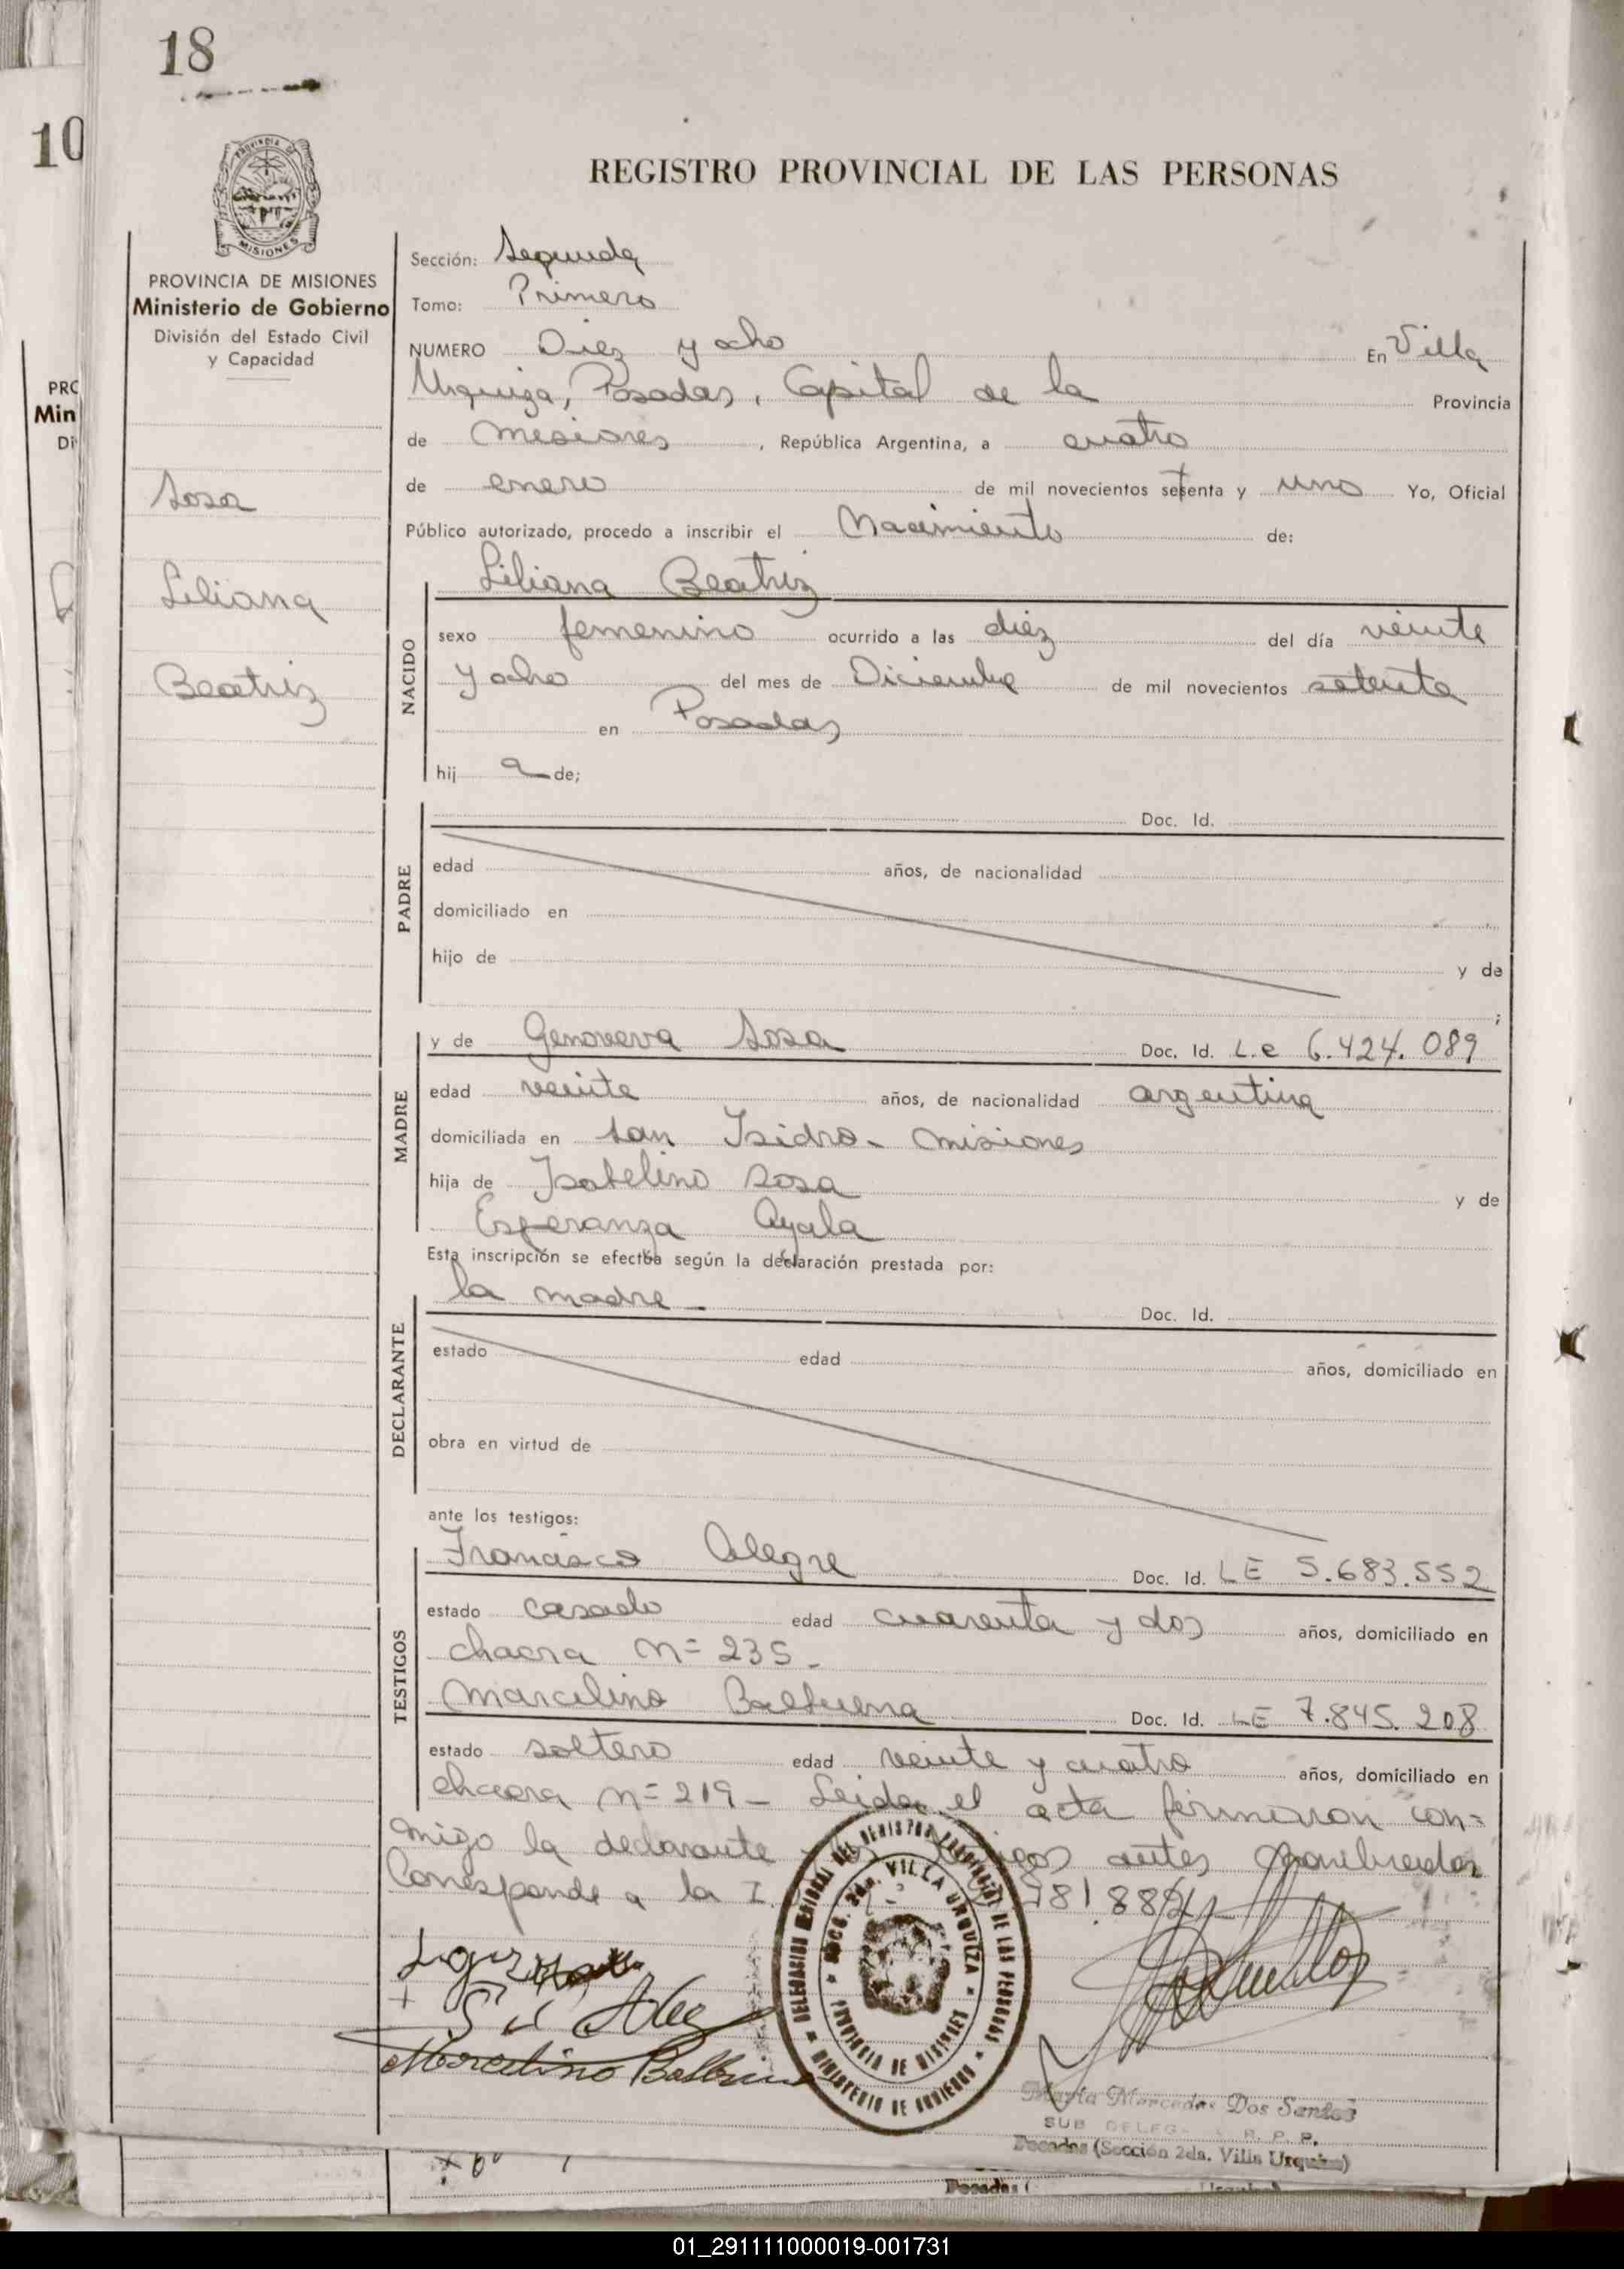 18
10
PROVINCIA DE
MISIONES
REGISTRO PROVINCIAL DE LAS PERSONAS
PROVINCIA DE MISIONES
Ministerio de Gobierno
División del Estado Civil
y Capacidad
PRO
Min
Di
Sosa
Liliana
Beatriz
Sección: Segunda
Tomo: Primero
NUMERO Diez y ocho En Villa
Urquiza, Posadas, Capital de la Provincia
de Misiones, República Argentina, a cuatro
de enero de mil novecientos setenta y uno Yo, Oficial
Público autorizado, procedo a inscribir el Nacimiento de:
NACIDO
Liliana Beatriz
sexo femenino ocurrido a las diez del día veinte
y ocho del mes de Diciembre de mil novecientos setenta
en Posadas
hij a de;
PADRE
Doc. Id.
edad años, de nacionalidad
domiciliado en
hijo de y de
;
MADRE
y de Genoveva Sosa Doc. Id. L.e 6.424.089
edad veinte años, de nacionalidad argentina
domiciliada en San Isidro - Misiones
hija de Isabelino Sosa y de
Esperanza Ayala
Esta inscripción se efectúa según la declaración prestada por:
DECLARANTE
la madre - Doc. Id.
estado edad años, domiciliado en
obra en virtud de
ante los testigos:
TESTIGOS
Francisco Alegre Doc. Id. LE 5.683.552
estado casado edad cuarenta y dos años, domiciliado en
chacra Nº 235 -
Marcelino Balbuena Doc. Id. LE 7.845.208
estado soltero edad veinte y cuatro años, domiciliado en
chacra nº 219 - Leida el acta firmaron con=
migo la declarante antes nombrados
Corresponde a la I 781.882
DELEGACION REGIONAL DEL REGISTRO PROVINCIAL DE LAS PERSONAS
MINISTERIO DE GOBIERNO
SECC. 2da. VILLA URQUIZA
PROVINCIA DE MISIONES
Marcelino
Maria Mercedes Dos Santos
SUB DELEG R. P. P.
Posadas (Sección 2da. Villa Urquiza)
Posadas (
01_291111000019-001731